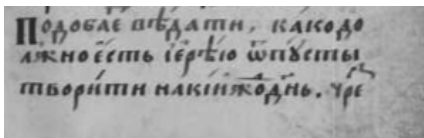 Подобае вѣдати, какодо
лжно есть їерѣю ѿпусты
творити накійждо дн҃ь. чре